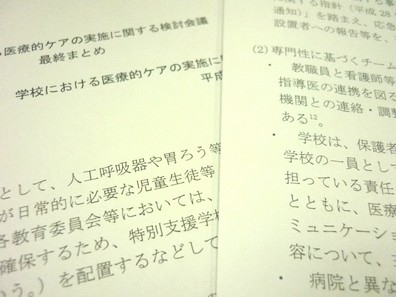 る医療的ケアの実施に関する検討会議
最終まとめ
学校における医療的ケアの実施に
平成
として、人工呼吸器や胃ろう等
が日常的に必要な児童生徒等
各教育委員会等においては、
確保するため、特別支援学校
いう。）を配置するなどして
関する指針（平成28
通知）」を踏まえ、応急
設置者への報告等を、
(2) 専門性に基づくチーム
・ 教職員と看護師等
指導医の連携を図る
機関との連絡・調整
ある12。
・ 学校は、保護者
学校の一員として
担っている責任
とともに、医療
ミュニケーショ
容について、
・ 病院と異な